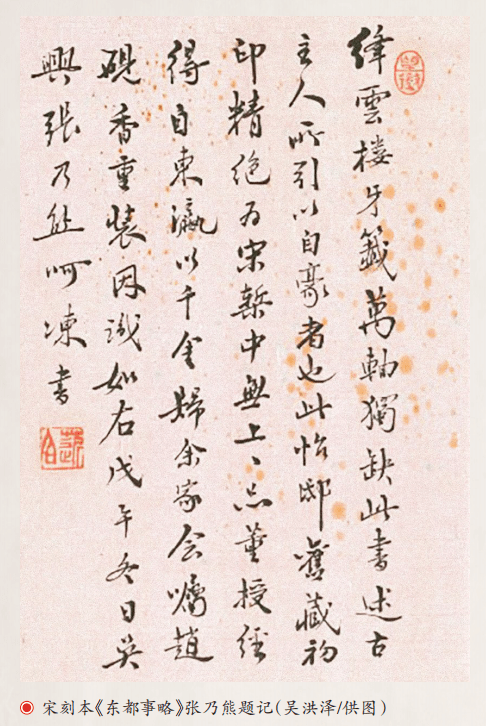 絳雲楼牙籤萬軸獨缺此書述古
主人所引以自豪者也此怡邸舊藏初
印精絶為宋槧中無上〻品董授經
得自東瀛以千金歸余家会囑趙
硯香重装因識如右戊午冬日吴
興張乃熊呵凍書
宋刻本《东都事略》张乃熊题记(吴洪泽/供图)